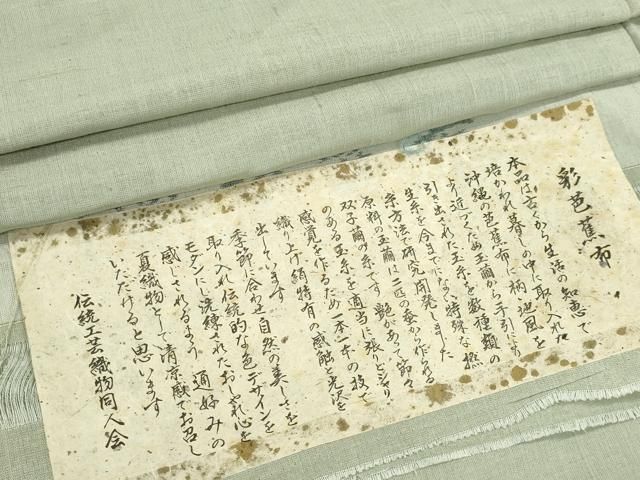 彩芭蕉布
本品は古くから生活の知恵で
培かわれ暮しの中に取り入れた
沖縄の芭蕉布に柄、地風を
より近づくため玉繭から手引にて
引き出された玉糸を数種類の
生糸を今までにない特殊な撚
糸方法で研究開発しました
原料の玉繭は二匹の蚕から作られる
双子繭の糸です。艶があって、節々
のある玉糸を適当に張りとシャリ
感覚を作るため一本一本の技で
織り上げ絹特有の感触と光沢を
出しています
季節に合わせ自然の美しさを
取り入れ伝統的な色デザインを
モダンにし洗練されたおしゃれ心を
感じされるよう 通好みの
夏織物として清涼感でお召し
いただけると思います
伝統工芸織物同人会